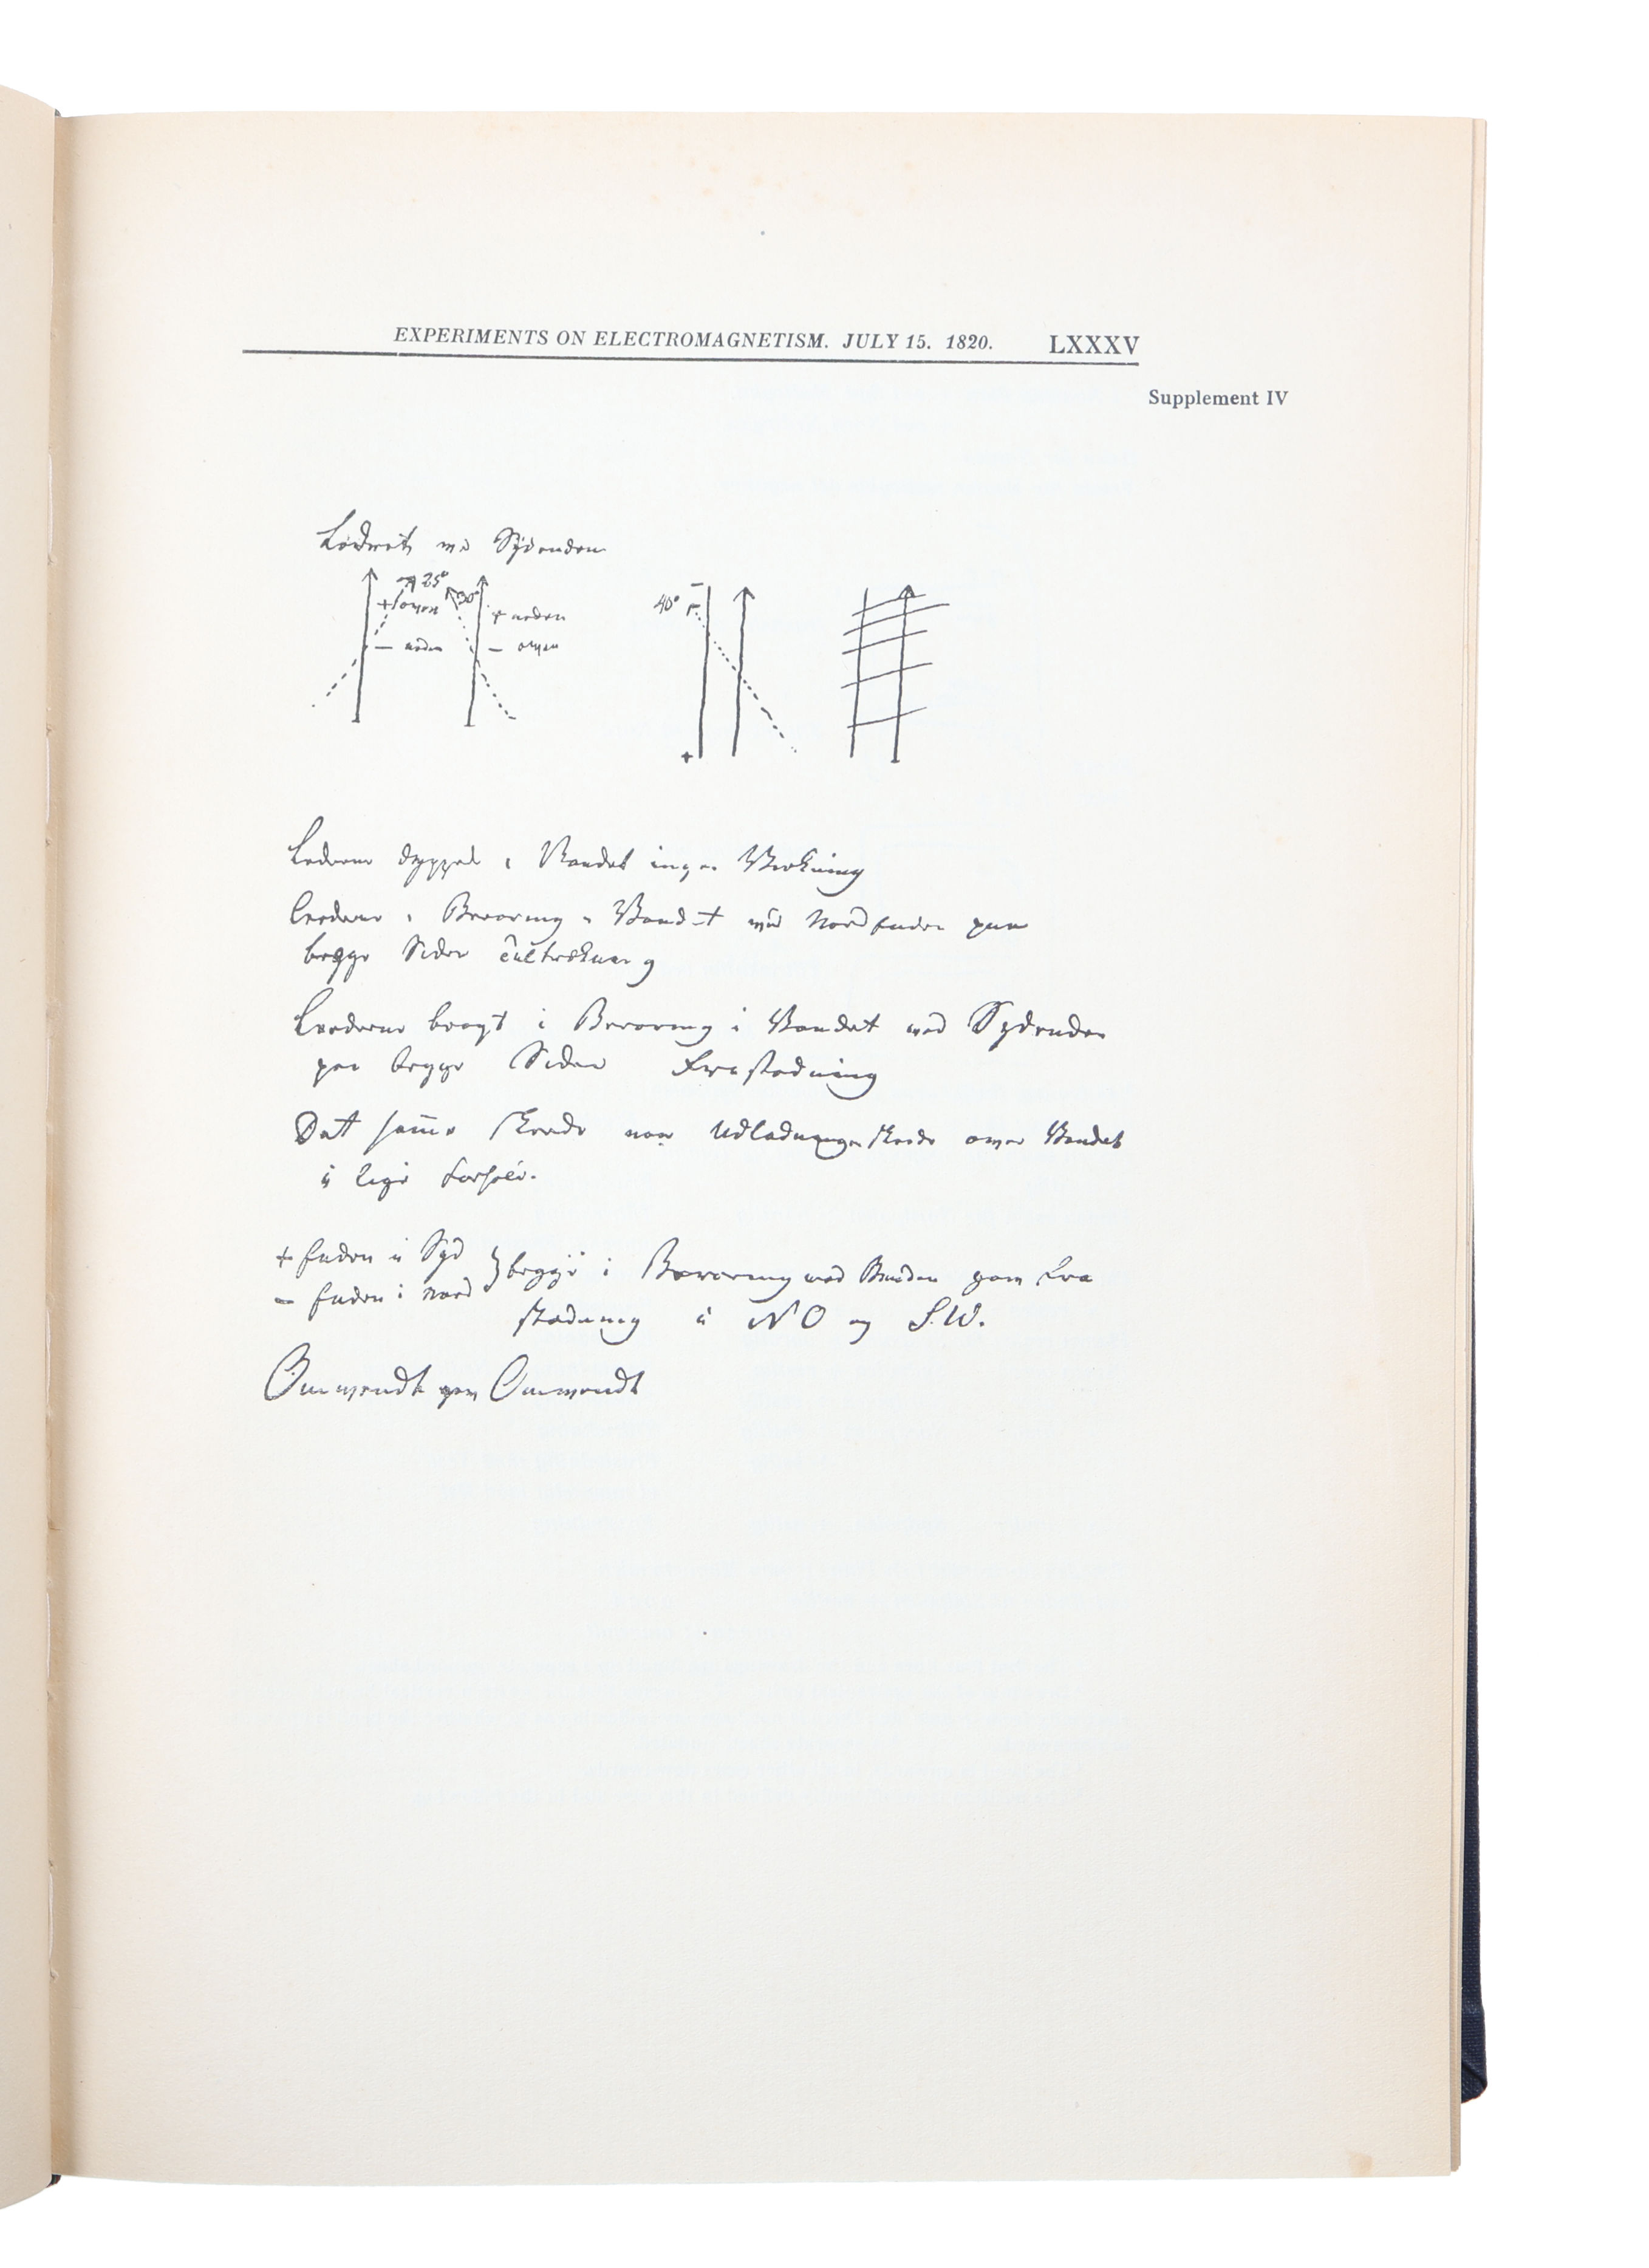 EXPERIMENTS ON ELECTROMAGNETISM. JULY 15. 1820. LXXXV
Supplement IV
Lodret ved Sydenden
25° 30°
+ foroven + neden
40° −
− neden − oven
+
Lederne dyppede i Vandet ingen Virkning
Lederne i Berøring i Vandet med Nordenden paa
begge Sider Tiltrækning
Lederne bragt i Berøring i Vandet med Sydenden
paa begge Sider Frastødning
Det samme skeede naar Udladningen skeede over Vandet
i
+ Enden i Syd } begge i Berøring med Bunden gave Fra
− Enden i Nord
stødning i NO og S.W.
Omvendt gav Omvendt